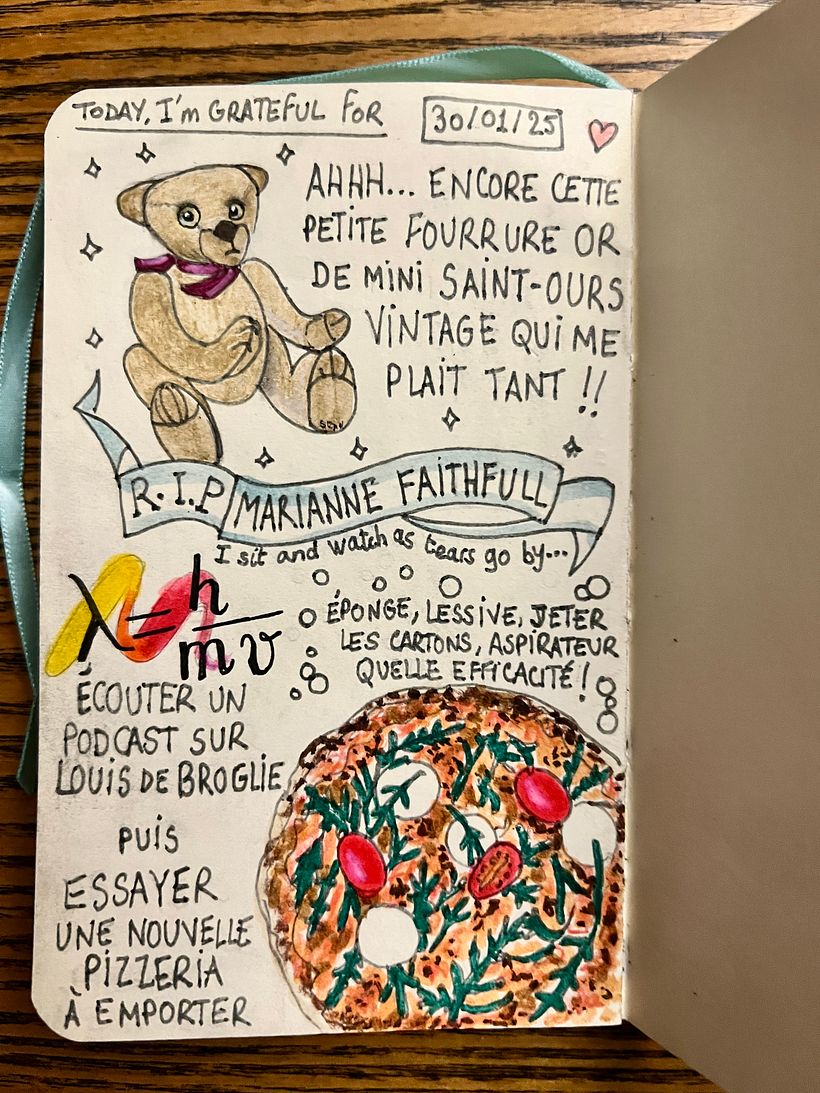 TODAY, I'm GRATEFUL FOR
30/01/25
AHHH... ENCORE CETTE
PETITE FOURRURE OR
DE MINI SAINT-OURS
VINTAGE QUI ME
PLAIT TANT !!
R.I.P MARIANNE FAITHFULL
I sit and watch as tears go by...
λ = h
mv
ÉPONGE, LESSIVE, JETER
LES CARTONS, ASPIRATEUR
QUELLE EFFICACITÉ !
ÉCOUTER UN
PODCAST SUR
LOUIS DE BROGLIE
PUIS
ESSAYER
UNE NOUVELLE
PIZZERIA
À EMPORTER